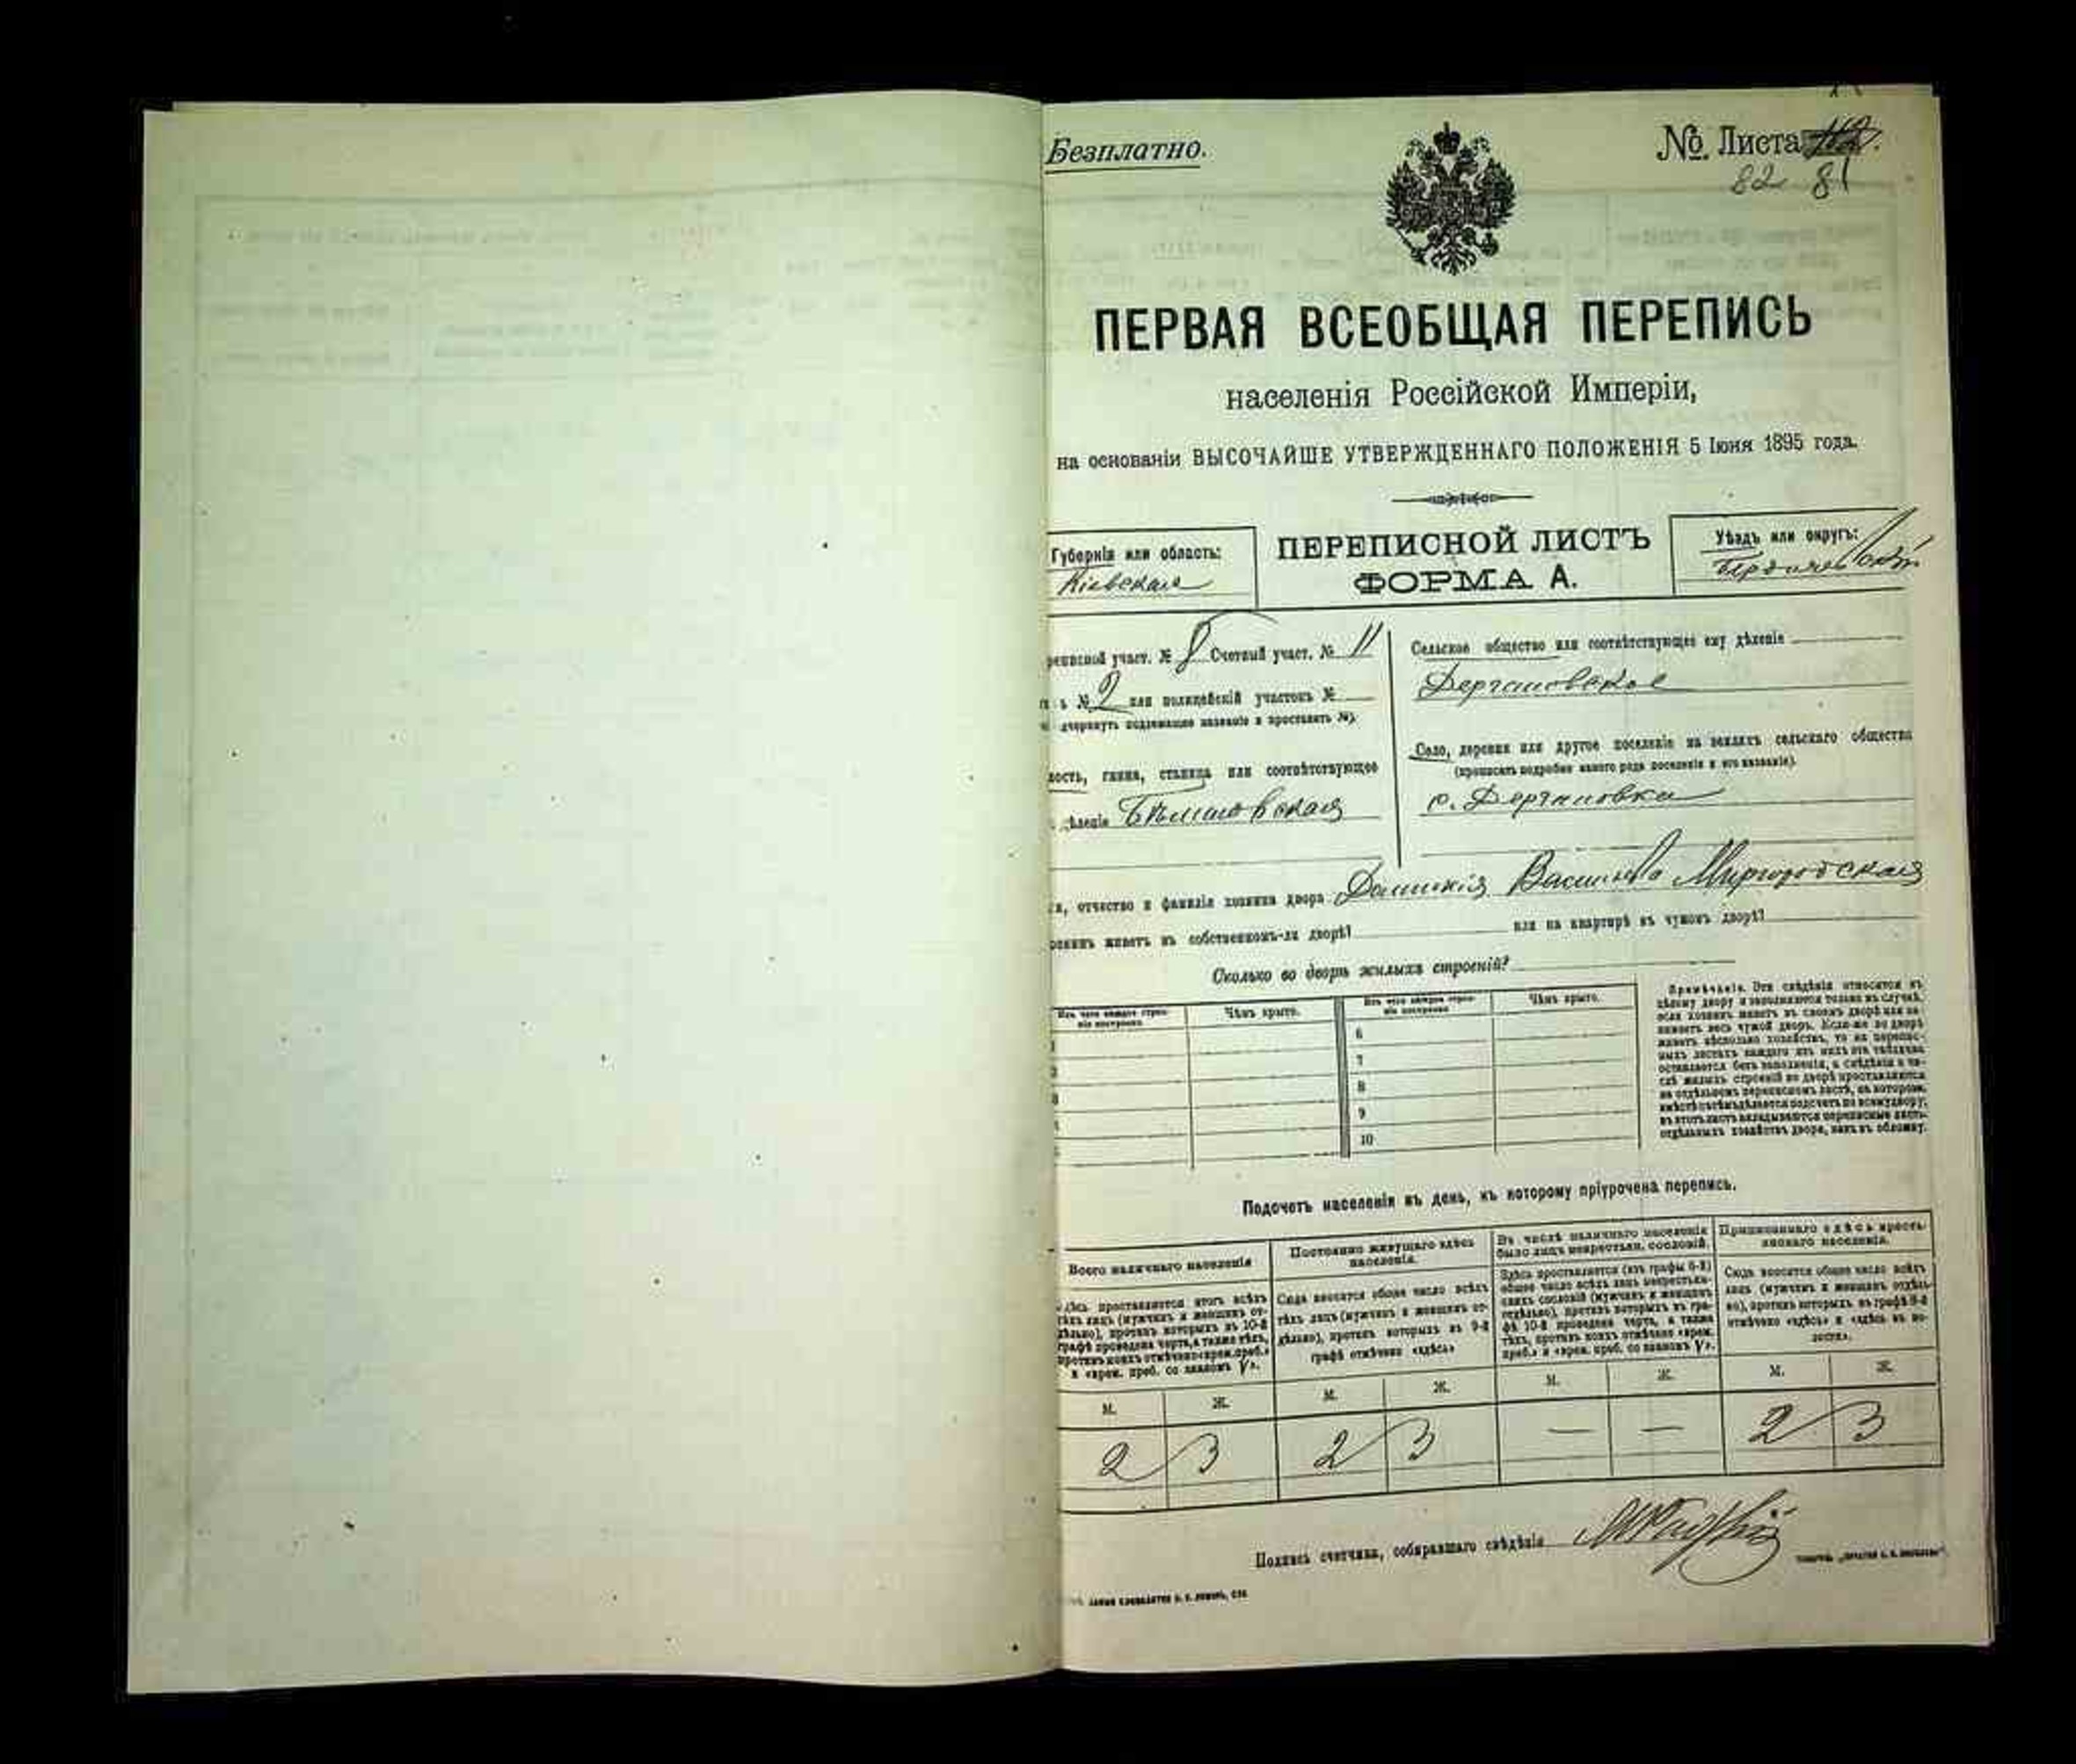 Безплатно.
№ Листа
82 81
ПЕРВАЯ ВСЕОБЩАЯ ПЕРЕПИСЬ
населенія Россійской Имперіи,
на основаніи ВЫСОЧАЙШЕ УТВЕРЖДЕННАГО ПОЛОЖЕНІЯ 5 Іюня 1895 года.
Губернія или область:
Кіевская
ПЕРЕПИСНОЙ ЛИСТЪ
ФОРМА А.
Уѣздъ или округъ:
Бердичевскій
реписной участ. № 8 Счетный участ. № 11
№ 2 или полицейскій участокъ №
дчеркнуть подлежащее названіе и проставить №).
лость, гмина, станица или соотвѣтствующее
дѣленіе
Сельское общество или соотвѣтствующее ему дѣленіе
Дергановское
Село, деревня или другое поселеніе на земляхъ сельскаго общества
(прописать подробно какого рода поселеніе и его названіе).
с. Дергановка
я, отчество и фамилія хозяина двора Васильева Миргородская
озяинъ живетъ въ собственномъ-ли дворѣ? или на квартирѣ въ чужомъ дворѣ?
Сколько во дворѣ жилыхъ строеній?
Изъ чего каждое строе-
ніе построено.
Чѣмъ крыто.
Изъ чего каждое строе-
ніе построено.
Чѣмъ крыто.
6
7
8
9
10
Примѣчаніе. Эти свѣдѣнія относятся къ
цѣлому двору и заполняются только въ случаѣ,
если хозяинъ живетъ въ своемъ дворѣ или на-
нимаетъ весь чужой дворъ. Если-же во дворѣ
живетъ нѣсколько хозяйствъ, то на перепис-
ныхъ листахъ каждаго изъ нихъ эти свѣдѣнія
оставляются безъ заполненія, а свѣдѣнія о чи-
слѣ жилыхъ строеній во дворѣ проставляются
на отдѣльномъ переписномъ листѣ, на которомъ
вмѣстѣ съ тѣмъ дѣлается подсчетъ по всему двору;
въ этотъ листъ вкладываются переписные листы
отдѣльныхъ хозяйствъ двора, какъ въ обложку.
Подсчетъ населенія въ день, къ которому пріурочена перепись.
Всего наличнаго населенія
Здѣсь проставляется итогъ всѣхъ
тѣхъ лицъ (мужчинъ и женщинъ от-
дѣльно), противъ которыхъ въ 10-й
графѣ проведена черта, а также тѣхъ,
противъ коихъ отмѣчено «врем. преб.»
и «врем. преб. со знакомъ V».
Постоянно живущаго здѣсь
населенія.
Сюда вносится общее число всѣхъ
тѣхъ лицъ (мужчинъ и женщинъ от-
дѣльно), противъ которыхъ въ 9-й
графѣ отмѣчено «здѣсь»
Въ числѣ наличнаго населенія
было лицъ некрестьян. сословій.
Здѣсь проставляется (изъ графы 6-й)
общее число всѣхъ лицъ некрестьян-
скихъ сословій (мужчинъ и женщинъ
отдѣльно), противъ которыхъ въ гра-
фѣ 10-й проведена черта, а также
тѣхъ, противъ коихъ отмѣчено «врем.
преб.» и «врем. преб. со знакомъ V».
Приписаннаго здѣсь кресть-
янскаго населенія.
Сюда вносится общее число всѣхъ
лицъ (мужчинъ и женщинъ отдѣль-
но), противъ которыхъ въ графѣ 8-й
отмѣчено «здѣсь» и «здѣсь въ во-
лости».
М. Ж. М. Ж. М. Ж. М. Ж.
2 3 2 3 — — 2 3
Подпись счетчика, собиравшаго свѣдѣнія